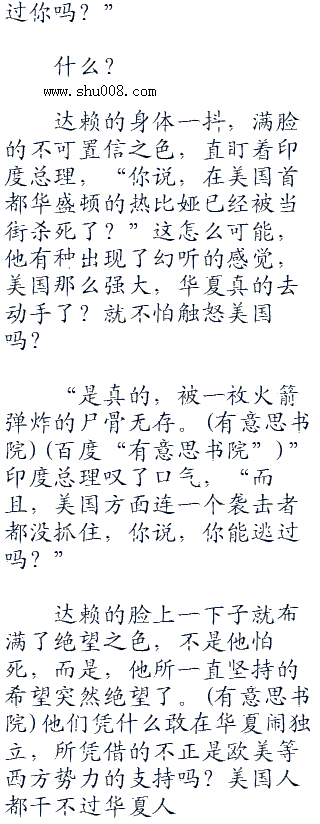 过你吗？”
什么？
www.shu008.com
达赖的身体一抖，满脸
的不可置信之色，直盯着印
度总理，“你说，在美国首
都华盛顿的热比娅已经被当
街杀死了？”这怎么可能，
他有种出现了幻听的感觉，
美国那么强大，华夏真的去
动手了？就不怕触怒美国
吗？
“是真的，被一枚火箭
弹炸的尸骨无存。(有意思书
院)(百度“有意思书院”)”
印度总理叹了口气，“而
且，美国方面连一个袭击者
都没抓住，你说，你能逃过
吗？”
达赖的脸上一下子就布
满了绝望之色，不是他怕
死，而是，他所一直坚持的
希望突然绝望了。(有意思书
院)他们凭什么敢在华夏闹独
立，所凭借的不正是欧美等
西方势力的支持吗？美国人
都干不过华夏人